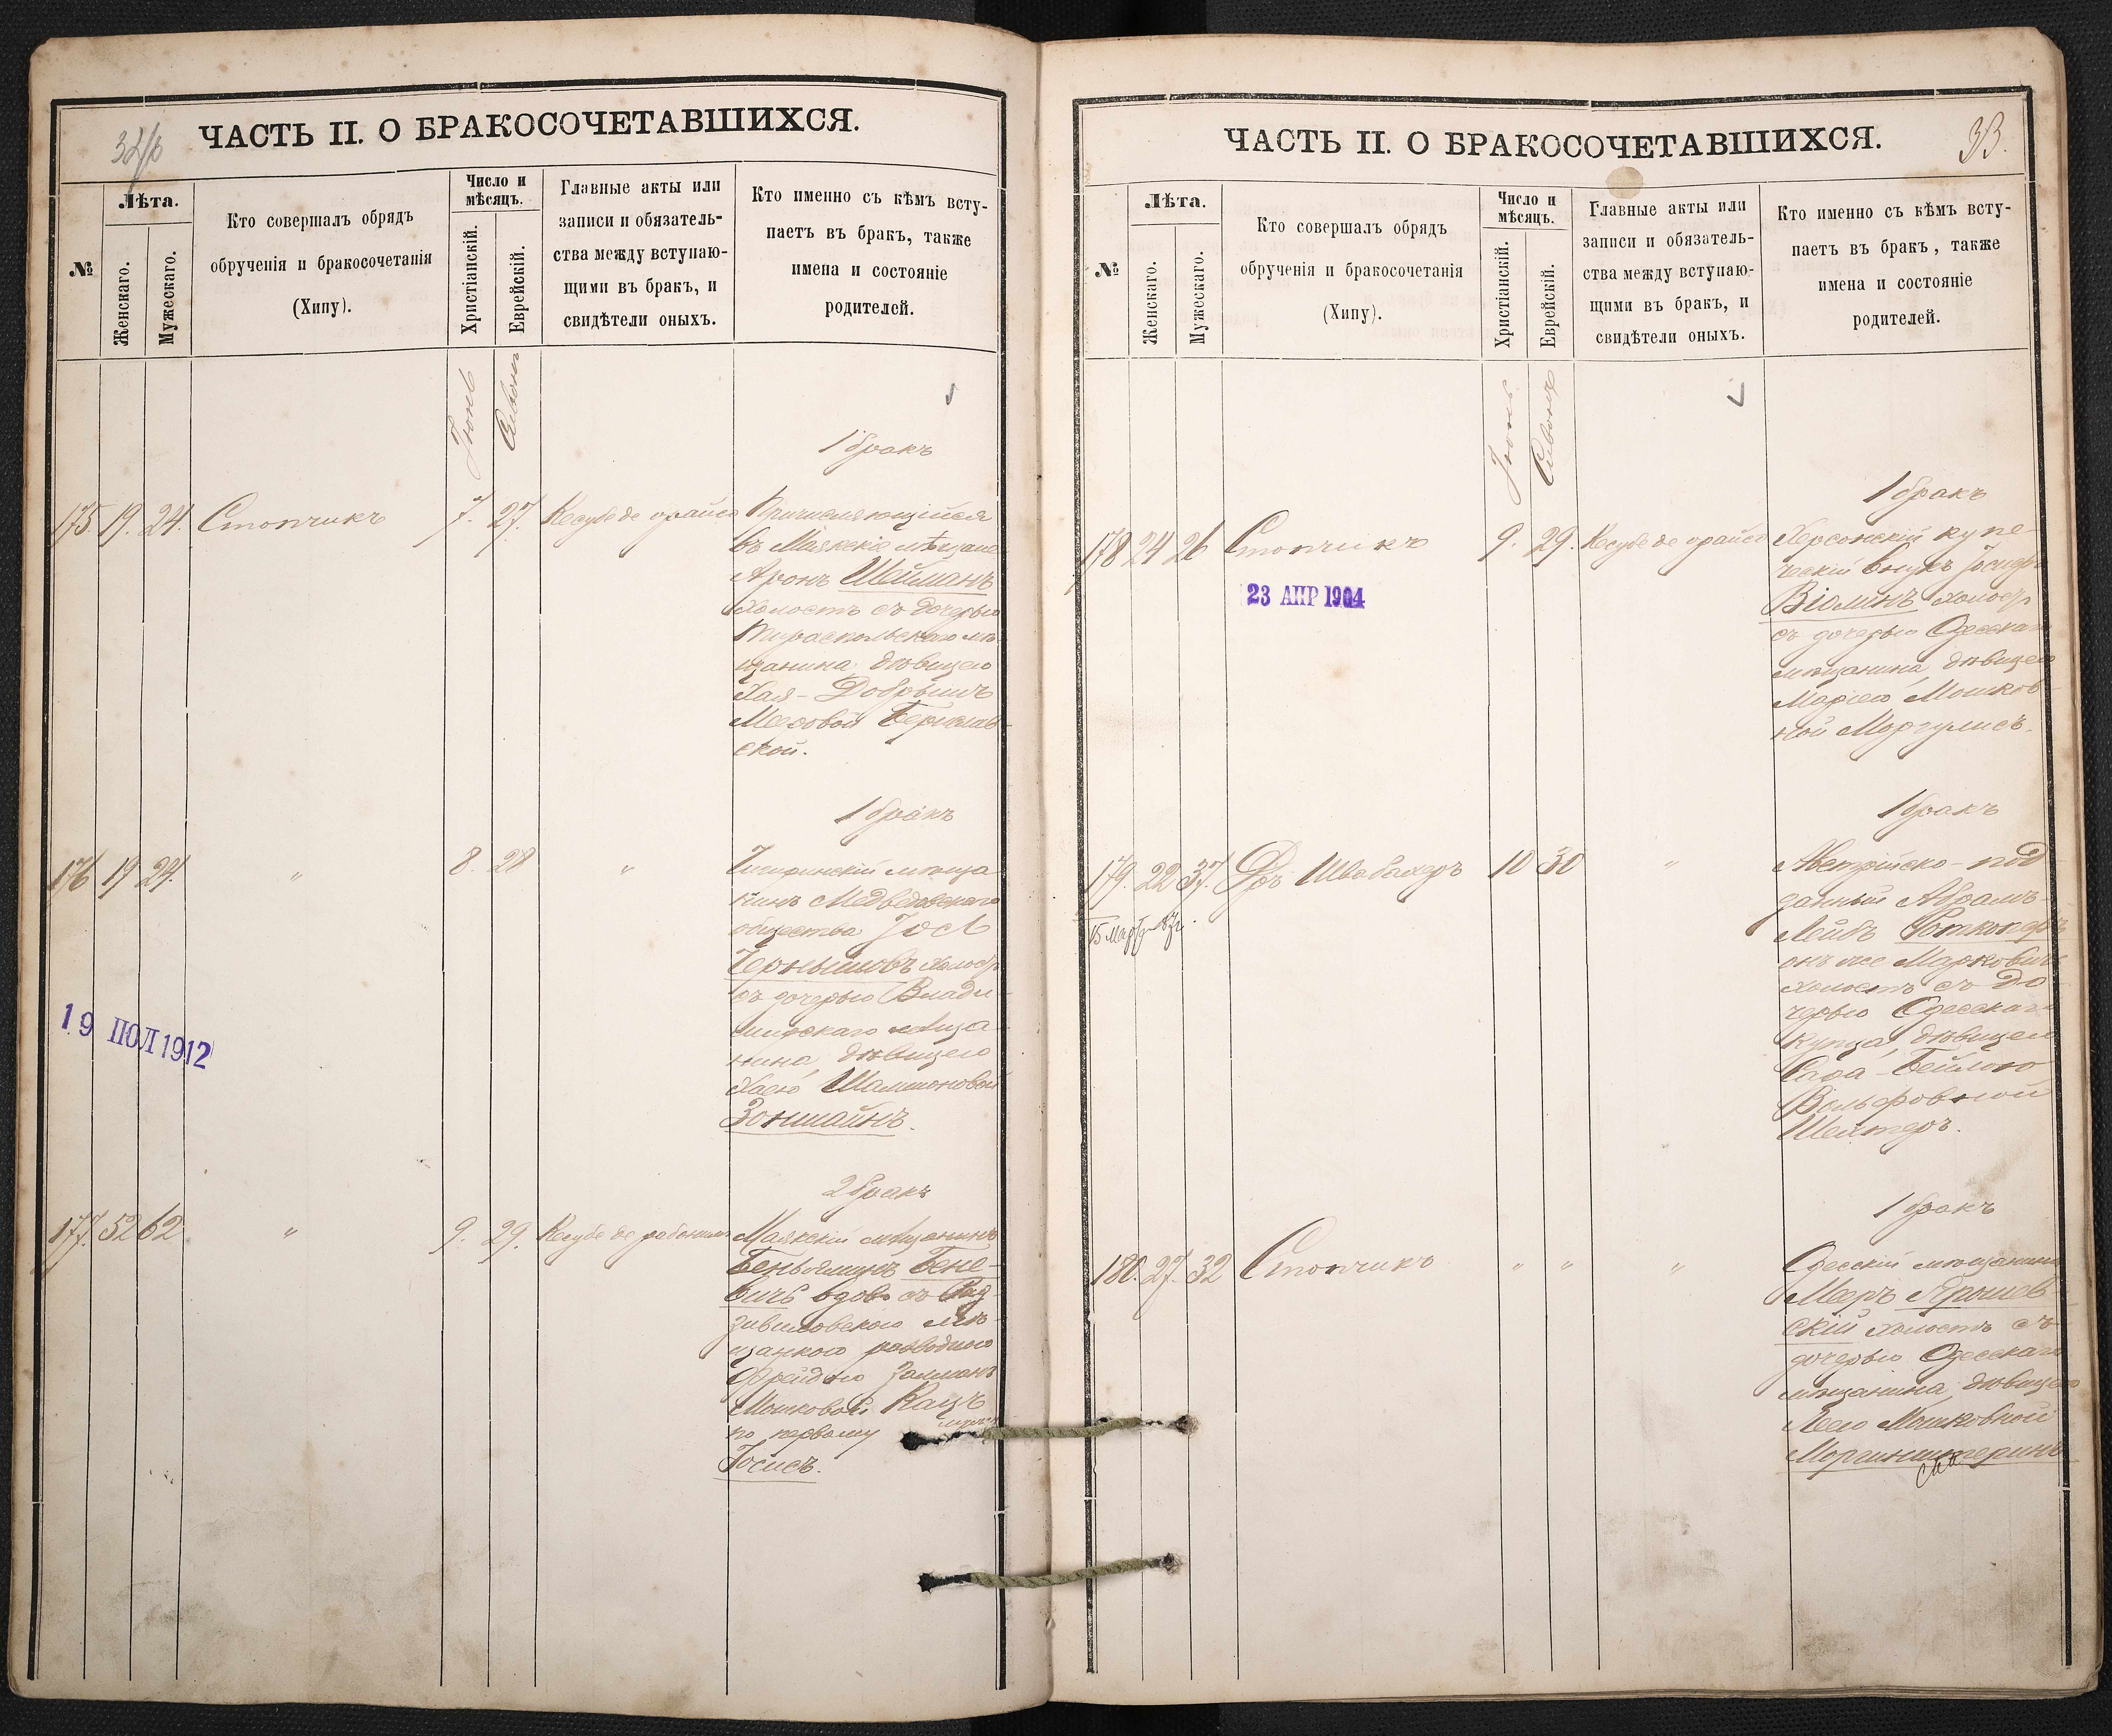 32/б
ЧАСТЬ II. О БРАКОСОЧЕТАВШИХСЯ.
№
Лѣта.
Женскаго.
Мужескаго.
Кто совершалъ обрядъ
обрученія и бракосочетанія
(Хипу).
Число и
мѣсяцъ.
Христіанскій.
Еврейскій.
Главные акты или
записи и обязатель-
ства между вступаю-
щими въ бракъ, и
свидѣтели оныхъ.
Кто именно съ кѣмъ всту-
паетъ въ бракъ, также
имена и состояніе
родителей.
Іюнь
Сивонъ
1 бракъ
175. 19. 24. Стопчикъ 7. 27. Кесубе де орайса Причисляющійся
въ Маякскіе мѣщане
Аронъ Шейманъ
холостъ съ дочерью
Тираспольскаго мѣ-
щанина, дѣвицею
Хая-Добрышъ
Меровой Берислав-
ской.
1 бракъ
176 19 24. " 8. 28 " Чигиринскій мѣща
нинъ Медведовскаго
общества Іосл
Чернышовъ холостъ
съ дочерью Влади-
мирскаго мѣща-
нина, дѣвицею
Хаею Шамшоновой
Зонштайнъ.
19 ПОЛ 1912
2 бракъ
177. 52 62 " 9. 29. Кесубе де рабонимъ Маякскій мѣщанинъ
Беньяминъ Бене-
вичъ вдовъ съ Рад-
зивиловскою мѣ-
щанкою разводною
Фрейдою Залманъ
Мошковой Кацъ
по первому мужу
Іосисъ.
33.
ЧАСТЬ II. О БРАКОСОЧЕТАВШИХСЯ.
№
Лѣта.
Женскаго.
Мужескаго.
Кто совершалъ обрядъ
обрученія и бракосочетанія
(Хипу).
Число и
мѣсяцъ.
Христіанскій.
Еврейскій.
Главные акты или
записи и обязатель-
ства между вступаю-
щими въ бракъ, и
свидѣтели оныхъ.
Кто именно съ кѣмъ всту-
паетъ въ бракъ, также
имена и состояніе
родителей.
Іюнь
Сивонъ
1 бракъ
178 24 26 Стопчикъ 9. 29. Кесубе де орайса Херсонскій купе-
ческій внукъ Іосифъ
Віолинъ холостъ
съ дочерью Одесскаго
мѣщанина, дѣвицею
Маріею Мошков-
ной Моргулисъ.
23 АПР 1904
1 бракъ
179. 22 37. Д-ръ Швабахеръ 10 30 " Австрійско-под
данный Абрамъ-
Лейбъ Роткопфъ
онъ же Марковичъ
холостъ съ до
черью Одесскаго
купца, дѣвицею
Сара-Бейлою
Вольфовной
Шехтеръ.
1 бракъ
180. 27. 32 Стопчикъ " " " Одесскій мѣщанинъ
Меръ Ярошев-
скій холостъ съ
дочерью Одесскаго
мѣщанина, дѣвицею
Леею Мошковной
Моргинштеринъ